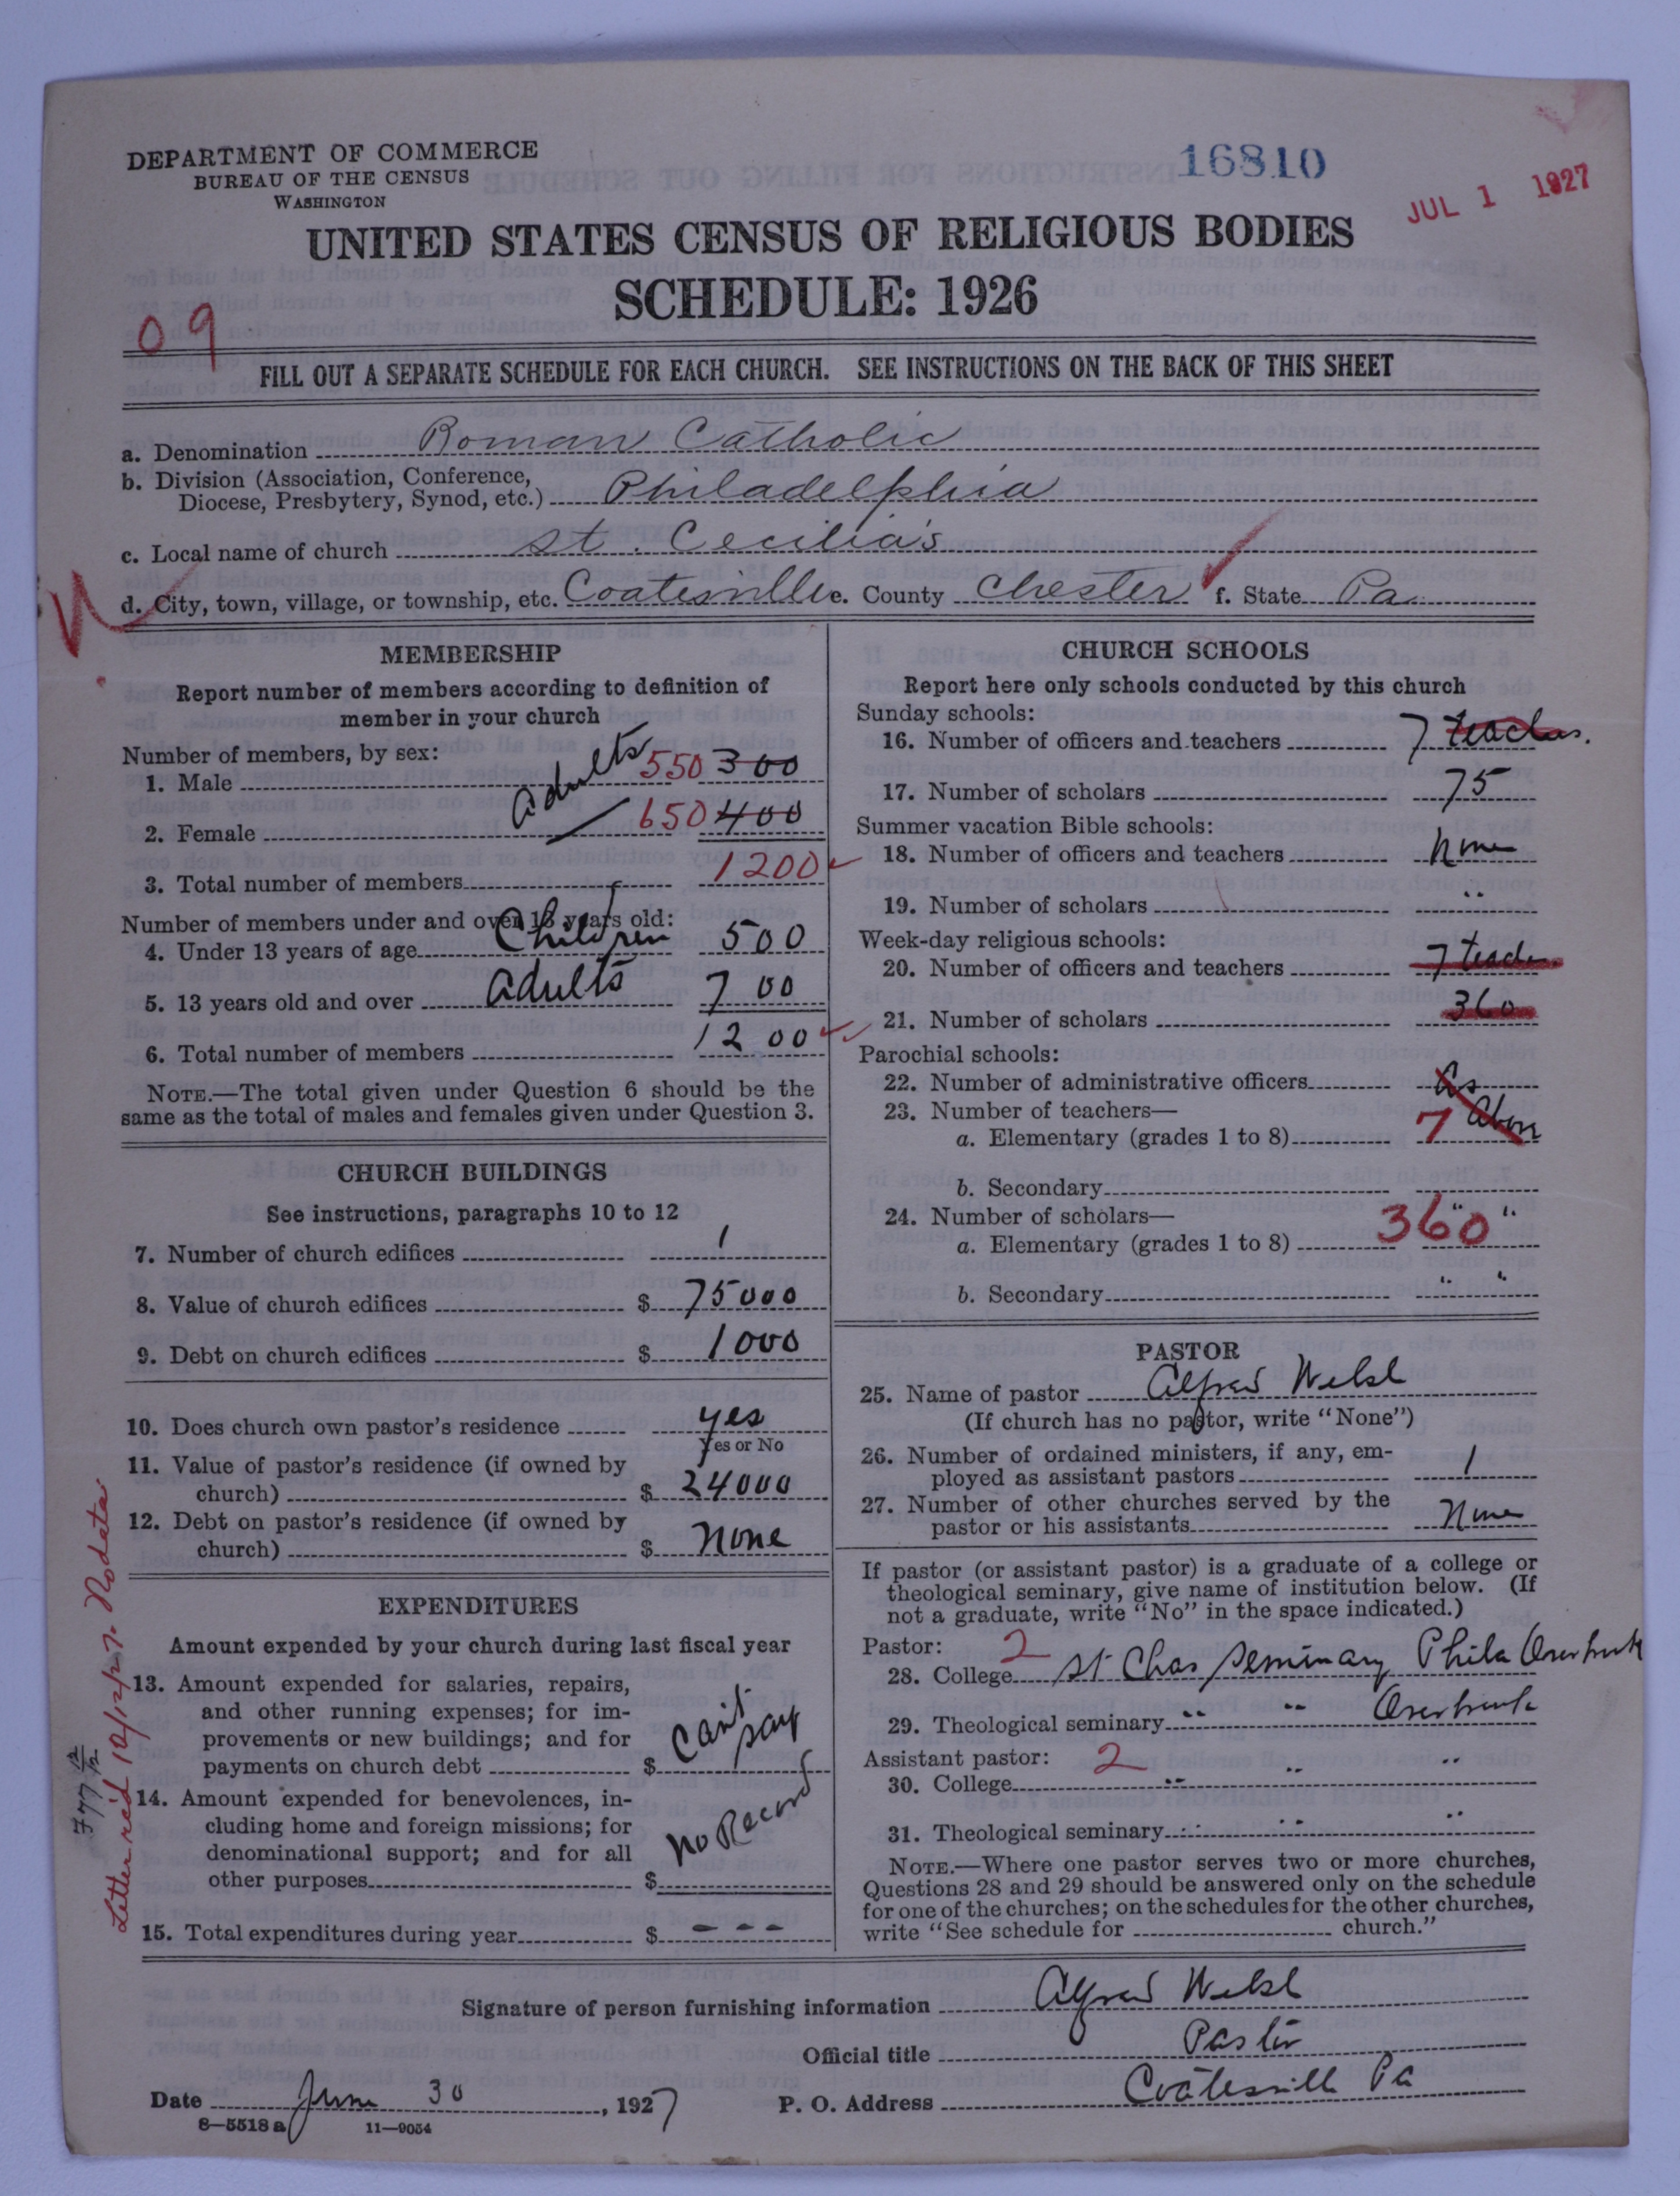 DEPARTMENT OF COMMERCE
BUREAU OF THE CENSUS
WASHINGTON
16810
JUL 1 1927
UNITED STATES CENSUS OF RELIGIOUS BODIES
SCHEDULE: 1926
09
FILL OUT A SEPARATE SCHEDULE FOR EACH CHURCH. SEE INSTRUCTIONS ON THE BACK OF THIS SHEET
a. Denomination Roman Catholic
b. Division (Association, Conference,
Diocese, Presbytery, Synod, etc.) Philadelphia
c. Local name of church St. Cecilia's
d. City, town, village, or township, etc. Coatesville e. County Chester f. State Pa.
MEMBERSHIP
Report number of members according to definition of
member in your church
Number of members, by sex:
1. Male Adults 550 300
2. Female 650 400
3. Total number of members 1200
Number of members under and over 13 years old:
4. Under 13 years of age Children 500
5. 13 years old and over Adults 700
6. Total number of members 1200
NOTE.—The total given under Question 6 should be the
same as the total of males and females given under Question 3.
CHURCH BUILDINGS
See instructions, paragraphs 10 to 12
7. Number of church edifices 1
8. Value of church edifices $ 75000
9. Debt on church edifices $ 1000
10. Does church own pastor's residence yes
Yes or No
11. Value of pastor's residence (if owned by
church) $ 24000
12. Debt on pastor's residence (if owned by
church) $ none
EXPENDITURES
Amount expended by your church during last fiscal year
13. Amount expended for salaries, repairs,
and other running expenses; for im-
provements or new buildings; and for
payments on church debt $ Can't say
14. Amount expended for benevolences, in-
cluding home and foreign missions; for
denominational support; and for all
other purposes $ No Record
15. Total expenditures during year $ - - -
Letter rec'd 10/12/27. No data
CHURCH SCHOOLS
Report here only schools conducted by this church
Sunday schools:
16. Number of officers and teachers 7 teachers.
17. Number of scholars 75
Summer vacation Bible schools:
18. Number of officers and teachers None
19. Number of scholars "
Week-day religious schools:
20. Number of officers and teachers 7 teach
21. Number of scholars 360
Parochial schools:
22. Number of administrative officers As
23. Number of teachers—
a. Elementary (grades 1 to 8) 7 Above
b. Secondary
24. Number of scholars—
a. Elementary (grades 1 to 8) 360 " "
b. Secondary " "
PASTOR
25. Name of pastor Alfred Welsh
(If church has no pastor, write "None")
26. Number of ordained ministers, if any, em-
ployed as assistant pastors 1
27. Number of other churches served by the
pastor or his assistants None
If pastor (or assistant pastor) is a graduate of a college or
theological seminary, give name of institution below. (If
not a graduate, write "No" in the space indicated.)
Pastor: 2
28. College St Chas Seminary Phila Overbrook
29. Theological seminary " " Overbrook
Assistant pastor: 2
30. College " " "
31. Theological seminary " " "
NOTE.—Where one pastor serves two or more churches,
Questions 28 and 29 should be answered only on the schedule
for one of the churches; on the schedules for the other churches,
write "See schedule for church."
Signature of person furnishing information Alfred Welsh
Official title Pastor
Date June 30, 1927 P. O. Address Coatesville Pa
8-5518 a 11-9054